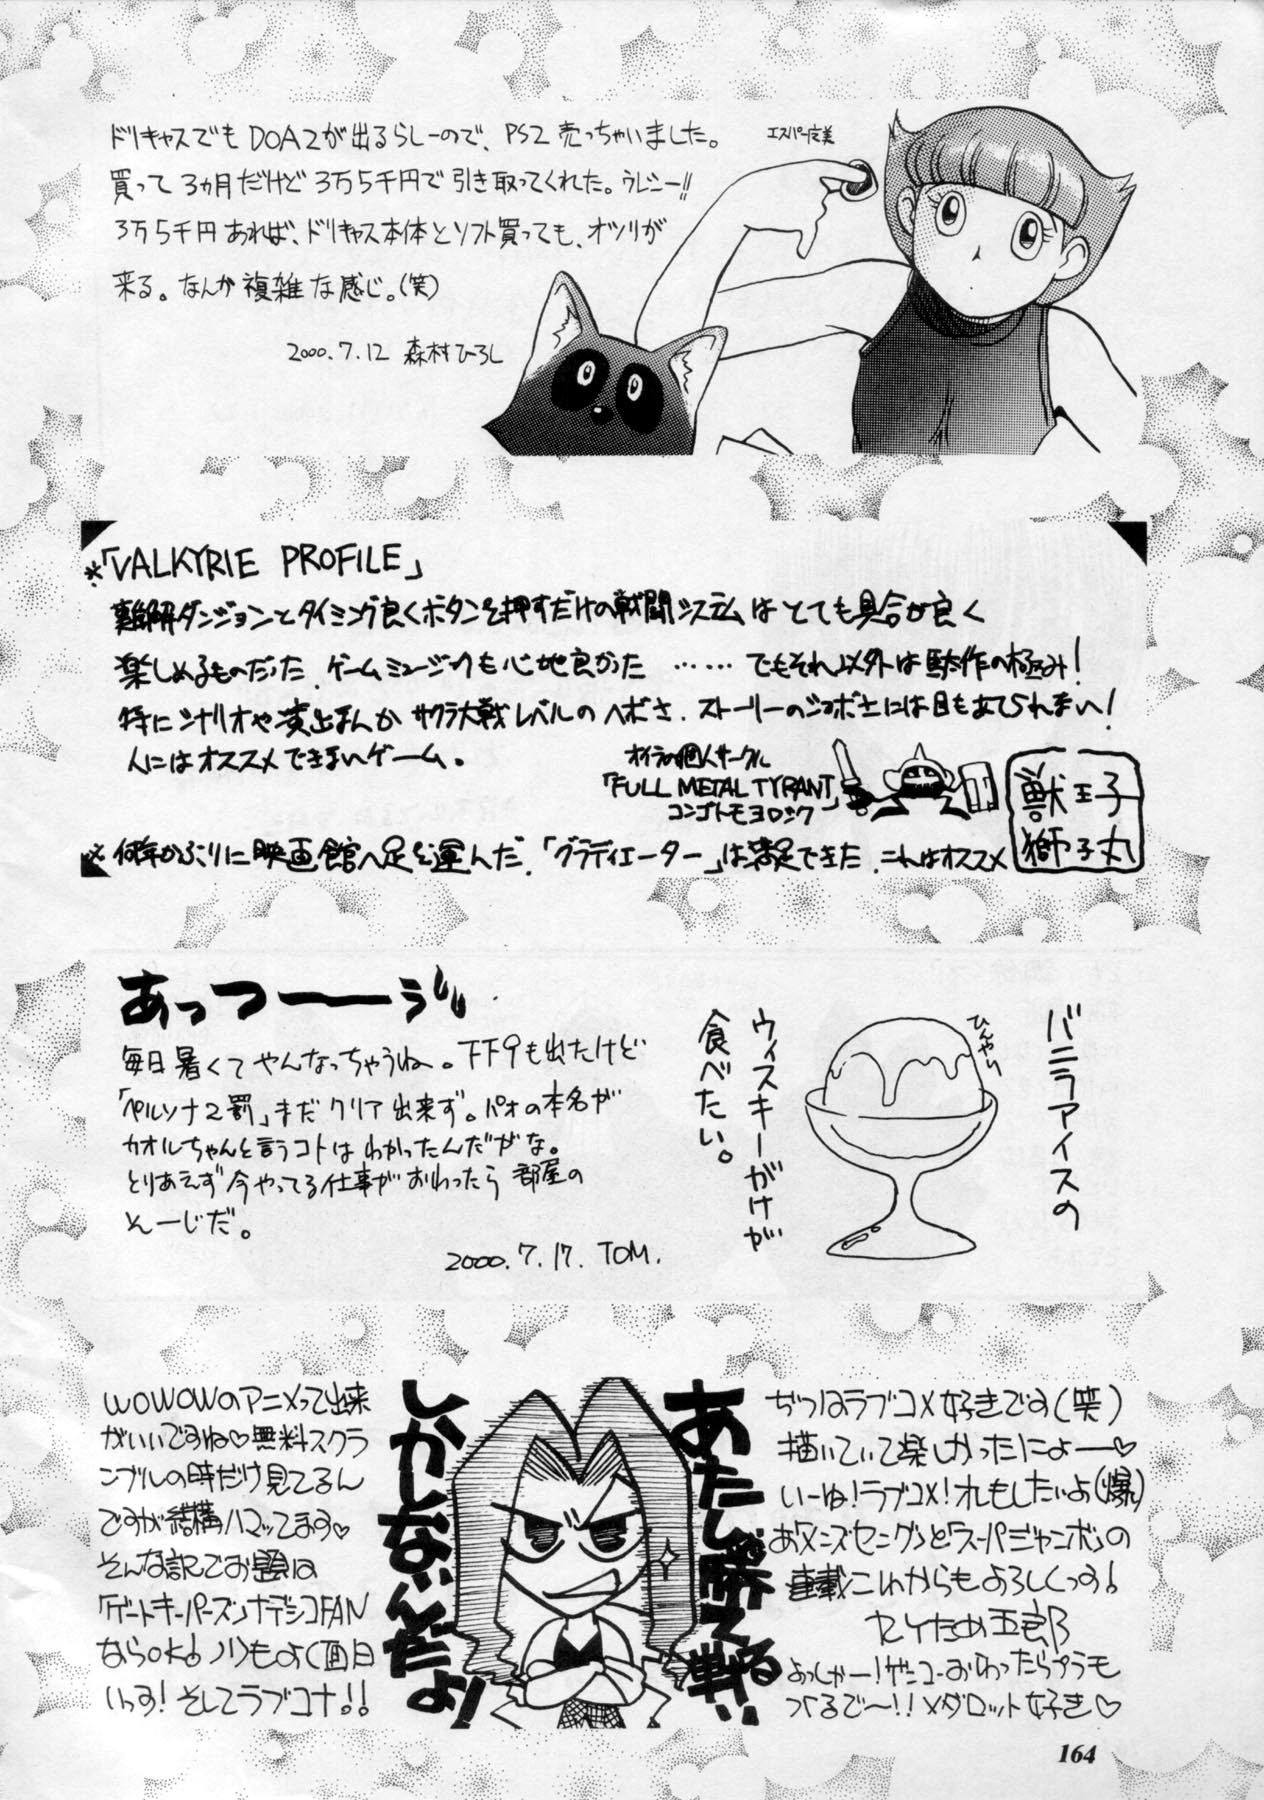 ドリキャスでもDOA2が出るらしーので、PS2売っちゃいました。
買って3ヵ月だけど3万5千円で引き取ってくれた。ウレシー!!
3万5千円あれば、ドリキャス本体とソフト買っても、オツリが
来る。なんか複雑な感じ。(笑)
2000.7.12 森村ひろし
エスパー定美
*「VALKYRIE PROFILE」
難解ダンジョンとタイミング良くボタンを押すだけの戦闘システムはとても具合が良く
楽しめるものだった。ゲームミュージックも心地良かった ‥‥‥ でもそれ以外は駄作の極み!
特にシナリオや演出なんかサクラ大戦レベルのヘボさ。ストーリーのショボさには目もあてられない!
人にはオススメできないゲーム。
オイラの個人サークル
「FULL METAL TYRANT」
コンゴトモヨロシク
獣王子
獅子丸
*何年かぶりに映画館へ足を運んだ。「グラディエーター」は満足できた。これはオススメ
あっつーーぅ
毎日暑くてやんなっちゃうね。FF9も出たけど
「ペルソナ2罰」まだクリア出来ず。パオの本名が
カオルちゃんと言うコトはわかったんだがな。
とりあえず今やってる仕事がおわったら部屋の
そーじだ。
2000.7.17. TOM.
バニラアイスの
ウィスキーがけが
食べたい。
ひんやり
WOWOWのアニメって出来
がいいですね♡無料スクラ
ンブルの時だけ見てるん
ですが結構ハマッてます♡
そんな訳でお題は
「ゲートキーパーズ」ナデシコFAN
ならOK!ノリもよく面白
いっす!そしてラブコナ!!
あたし勝て戦る
しかしないんだよ!
ぢつはラブコメ好きです(笑)
描いていて楽しかったにょー♡
いーね!ラブコメ!オレもしたいよ(爆)
あ、メンズヤングとスーパージャンボの
連載これからもよろしくっす!
セイため五郎
よっしゃー!ゲンコーおわったらプラモ
つくるで〜!!メダロット好き♡
164